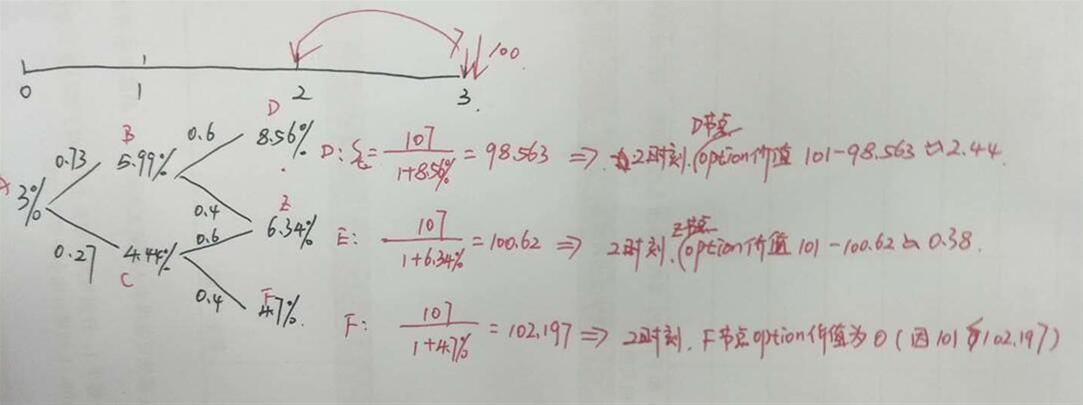 100
0 1 2 3
D
B 0.6 8.56%
0.73 5.99%
A 3%
0.4 E
0.6 6.34%
0.27 4.44%
C
0.4 F
4.7%
D节点
D: = 107 / 1+8.56% = 98.563 ⇒ 2时刻.(option价值 101-98.563≈2.44.
E节点
E: 107 / 1+6.34% = 100.62 ⇒ 2时刻.(option价值 101-100.62≈0.38.
F: 107 / 1+4.7% = 102.197 ⇒ 2时刻. F节点option价值为0(因101 102.197)